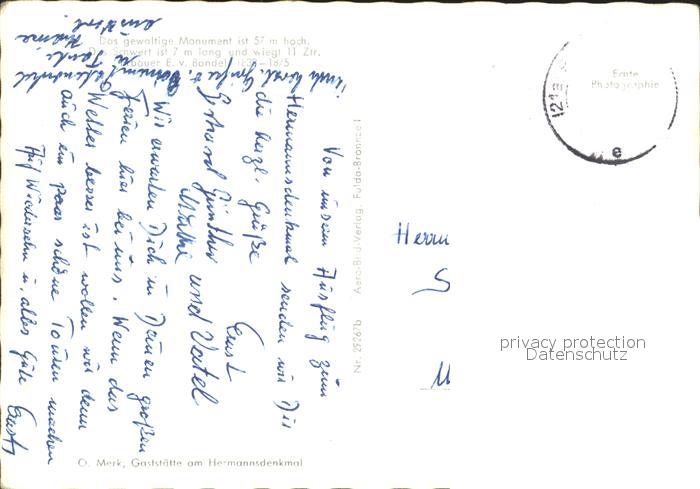 Das gewaltige Monument ist 57 m hoch.
Das Schwert ist 7 m lang und wiegt 11 Ztr.
Erbauer E. v. Bandel 1838-1875
Von unsrem Ausflug zum
Hermannsdenkmal senden wir Dir
die herzl. Grüße
Gerhard Günther Ernst
Mutti und Vatel
Wir erwarten Dich in Deinen großen
Ferien hier bei uns. Wenn das
Wetter besser ist wollen wir dann
auch ein paar schöne Touren machen
Auf Wiedersehn u. alles Gute Ernst
O. Merk, Gaststätte am Hermannsdenkmal
Aero-Bild-Verlag, Fulda-Bronnzell
Echte
Photographie
Herrn
privacy protection
Datenschutz